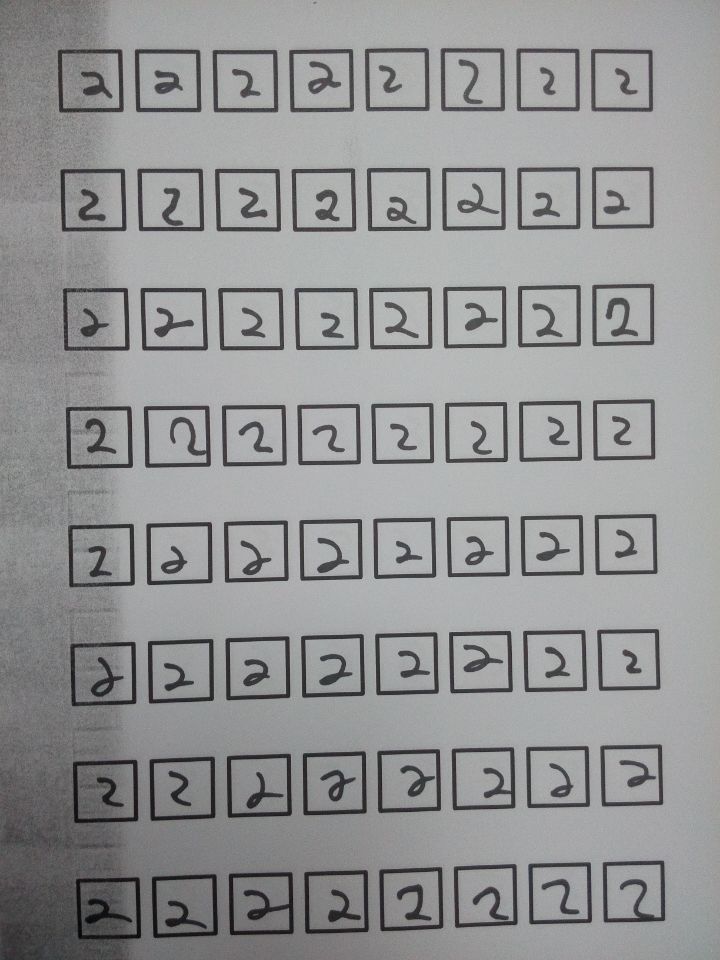 2 2 2 2 2 2 2 2
2 2 2 2 2 2 2 2
2 2 2 2 2 2 2 2
2 2 2 2 2 2 2 2
2 2 2 2 2 2 2 2
2 2 2 2 2 2 2 2
2 2 2 2 2 2 2 2
2 2 2 2 2 2 2 2